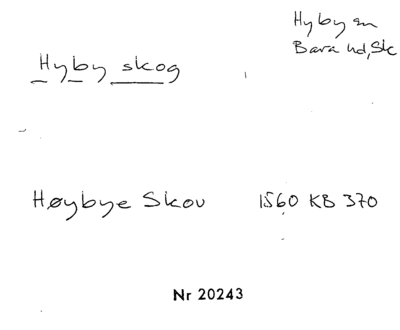 Hyby sn
Bara hd, Sk
Hyby skog
Høybye Skov 1560 KB 370
Nr 20243